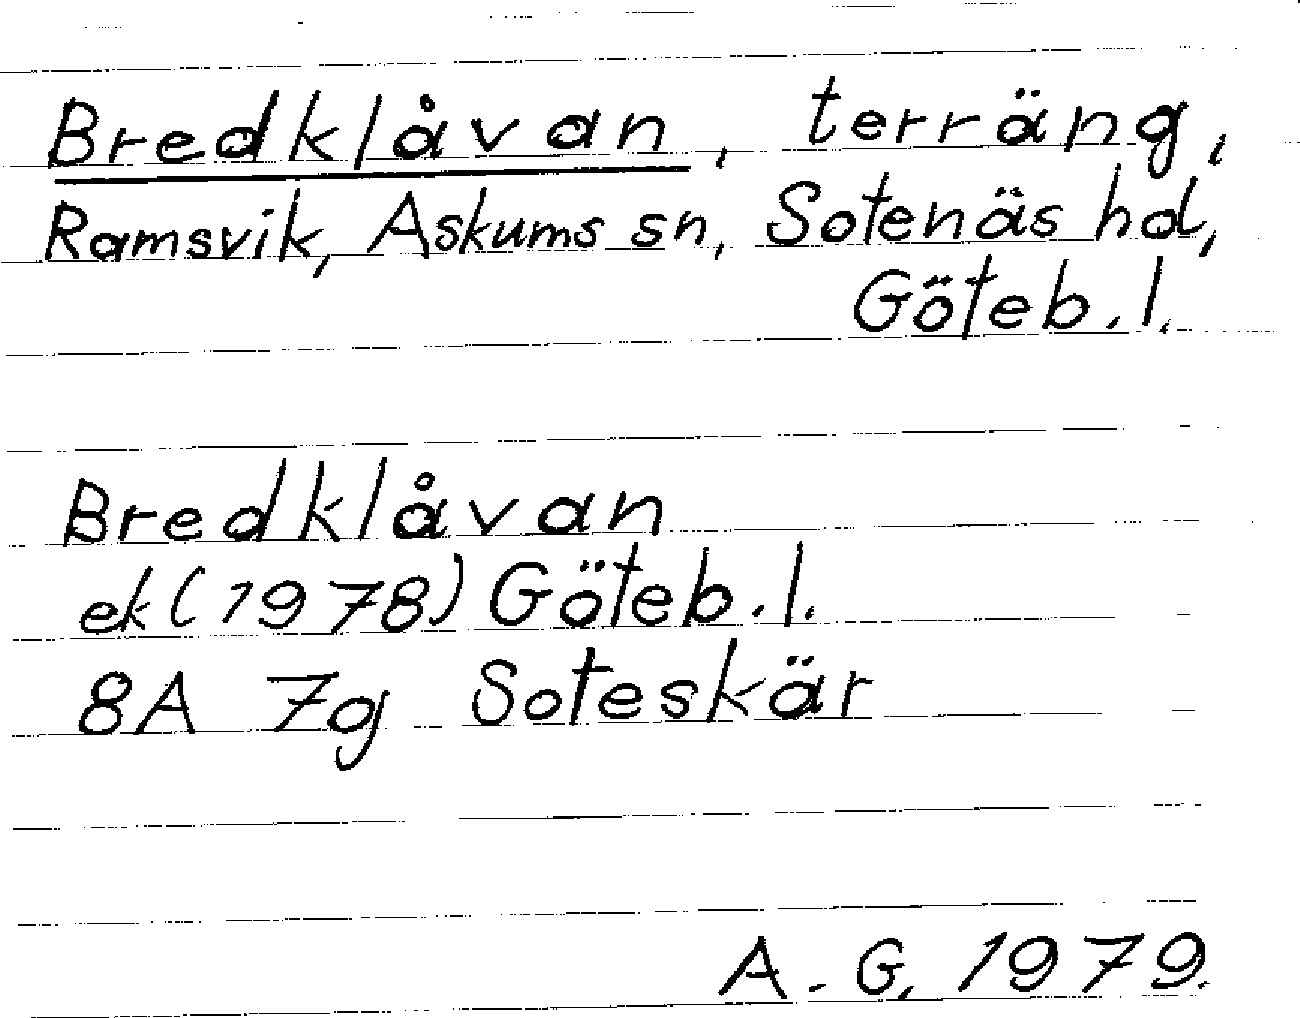 Bredklåvan, terräng,
Ramsvik, Askums sn, Sotenäs hd,
Göteb. l.
Bredklåvan
ek (1978) Göteb. l.
8A 7g Soteskär
A. G. 1979.